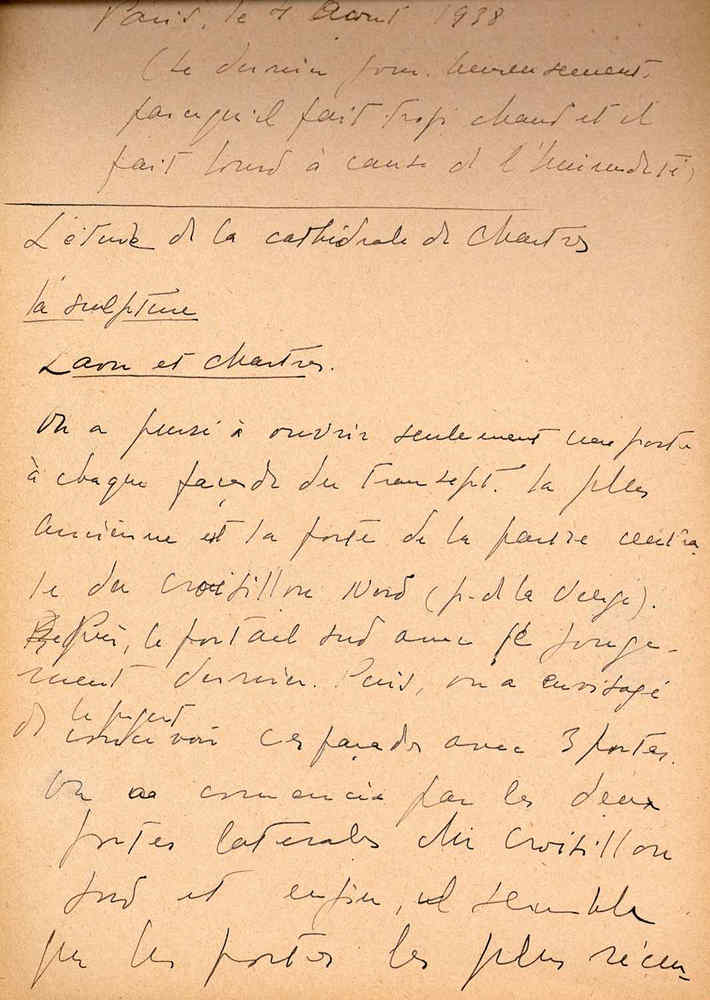 Paris, le 4 Août 1938
(le dernier jour. heureusement.
parcequ'il fait trop chaud et il
fait lourd à cause de l'humidité)
L'étude de la cathédrale de Chartres
la sculpture
Laon et Chartres.
On a pensé à ouvrir seulement une porte
à chaque façade du transept. La plus
ancienne est la porte de la partie centra
le du croisillon Nord (p. de la Vierge).
Puis, le portail sud avec le Juge-
ment dernier. Puis, on a envisagé
de concevoir ces façades avec 3 portes.
On a commencé par les deux
portes laterales du croisillon
sud et enfin, il semble
que les portes les plus récen-